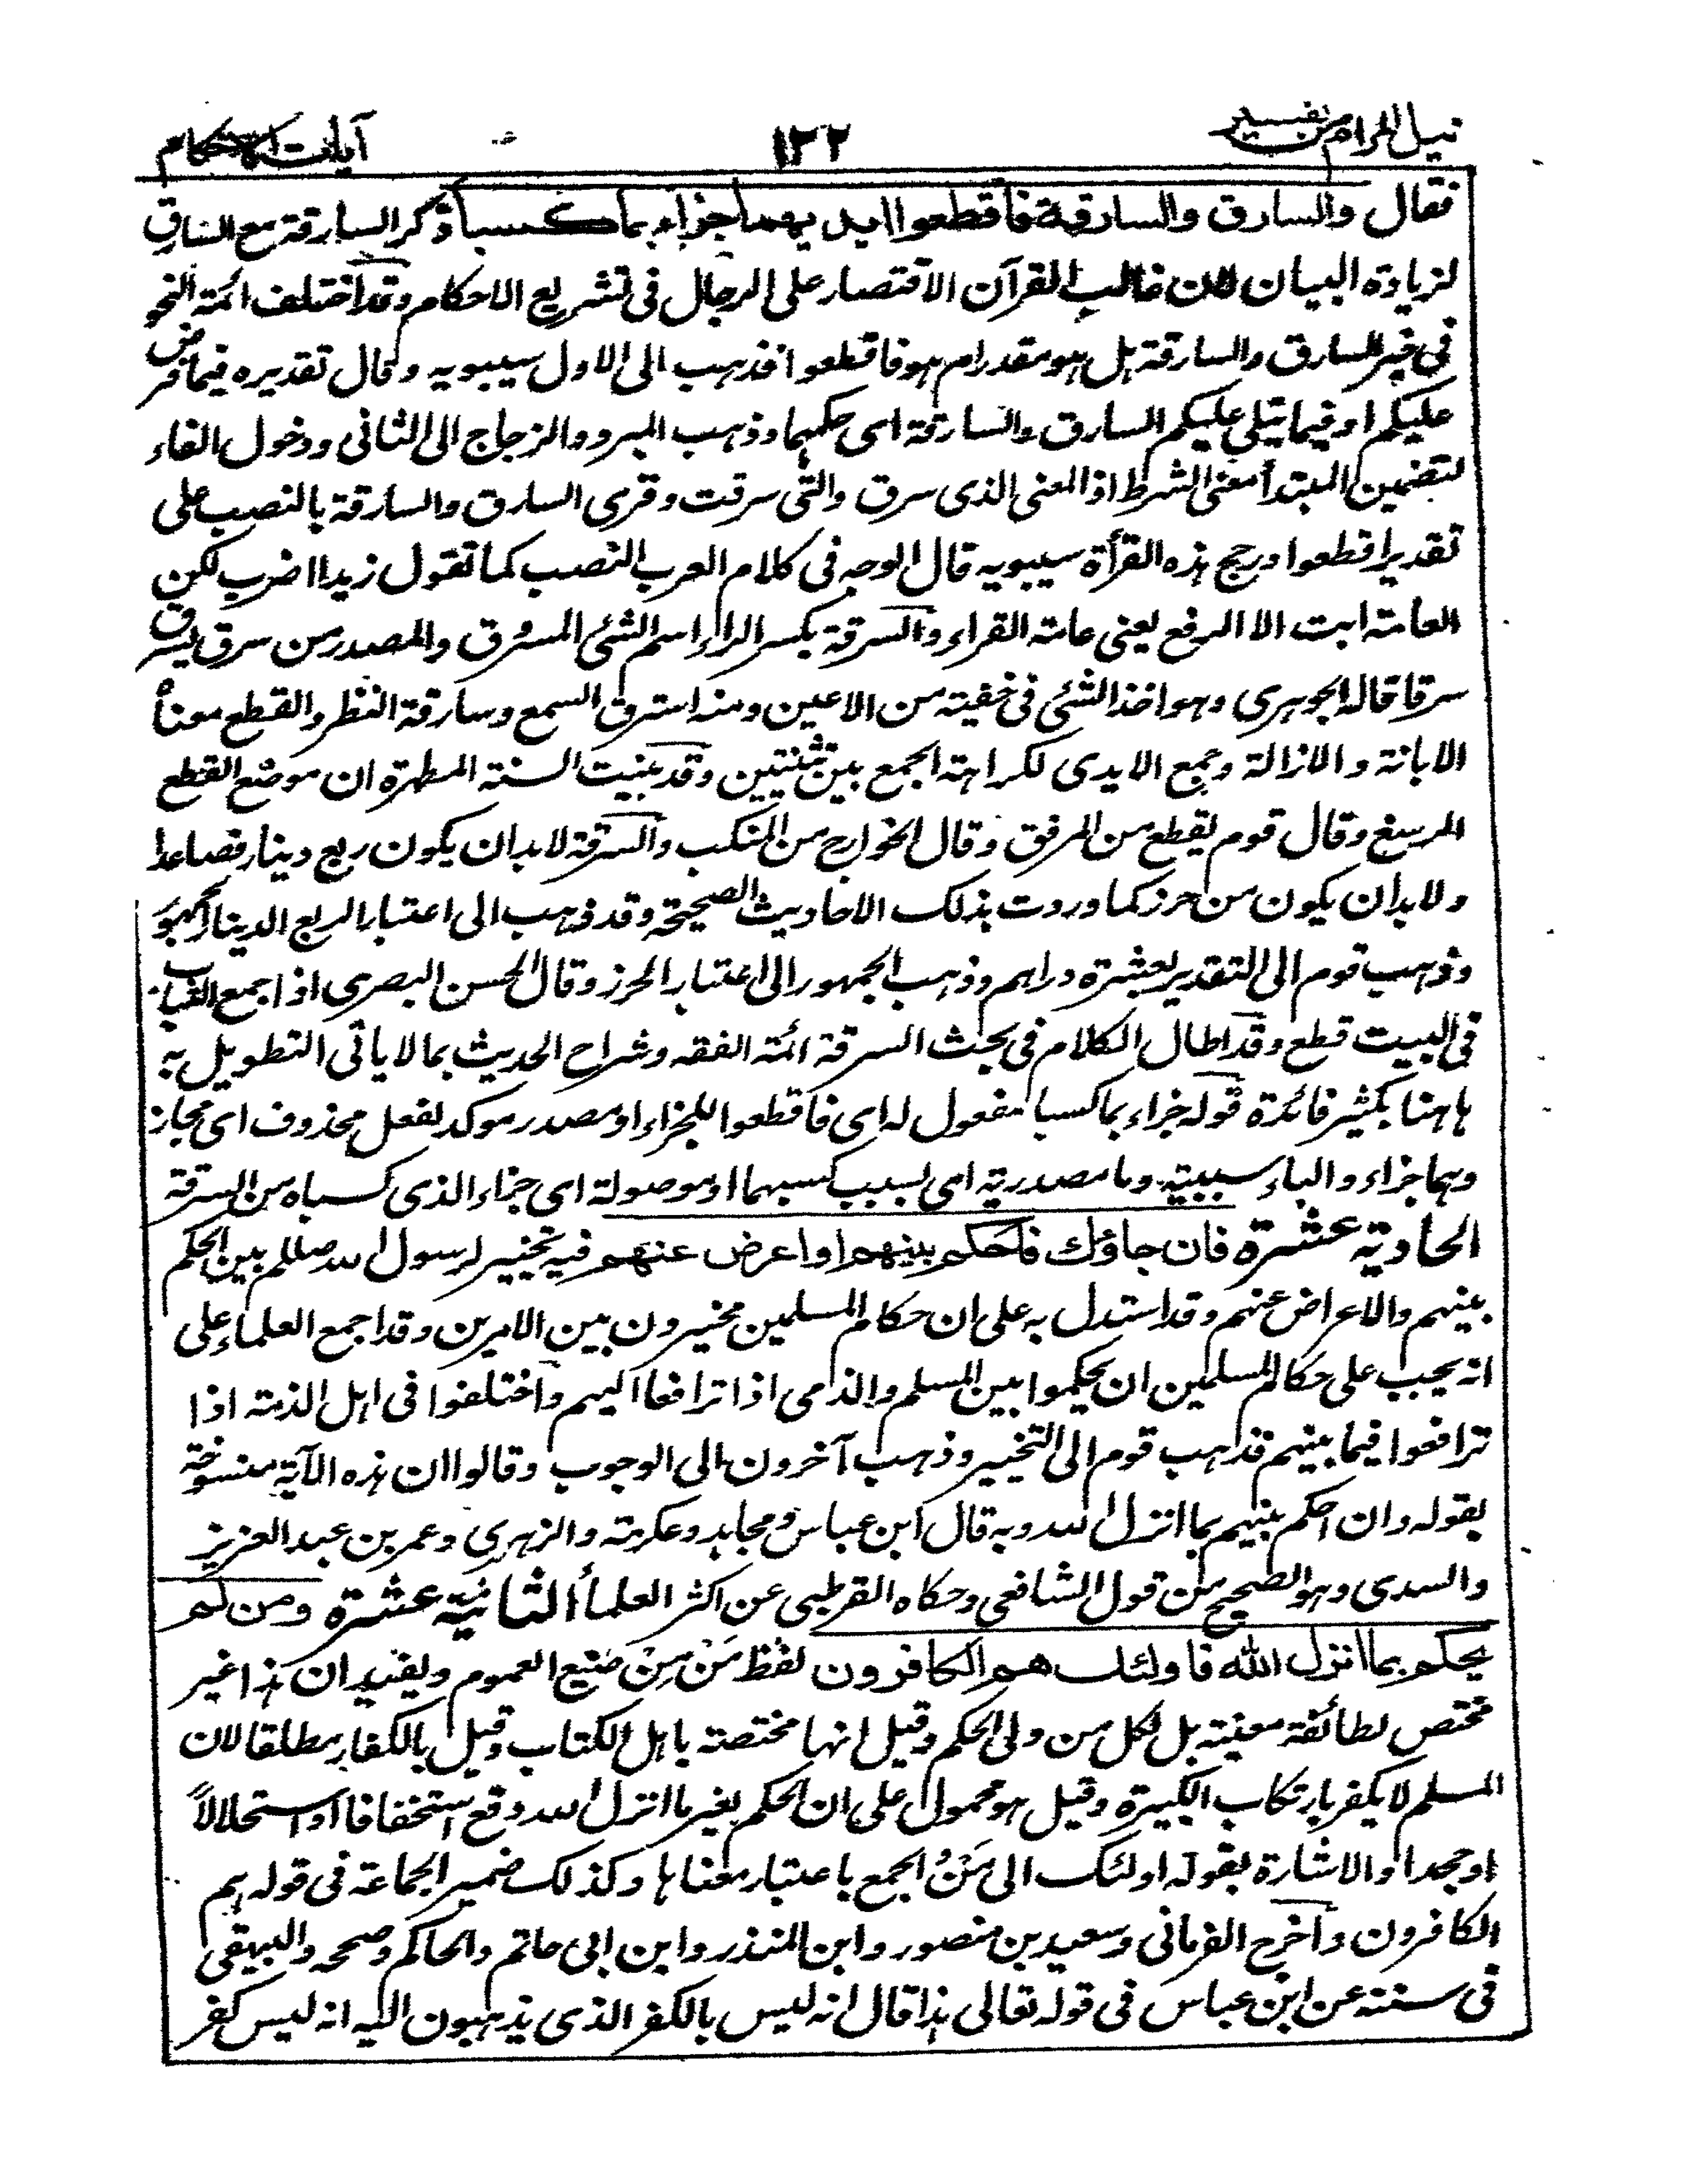 نيل المرام من تفسير ١٢٢ آيات الاحكام
فقال والسارق والسارقة فاقطعوا ايديهما جزاء بما كسبا ذكر السارقة مع السارق
لزيادة البيان لان غالب القرآن الاقتصار على الرجال فى تشريع الاحكام وقد اختلف ائمة النحو
فى خبر السارق والسارقة هل هو مقدر ام هو فاقطعوا فذهب الى الاول سيبويه وقال تقديره فيما فرض
عليكم او فيما يتلى عليكم السارق والسارقة اى حكمهما وذهب المبرد والزجاج الى الثانى ودخول الفاء
لتضمين المبتدأ معنى الشرط اذ المعنى الذى سرق والتى سرقت وقرى السارق والسارقة بالنصب على
تقدير اقطعوا ورجح هذه القرأة سيبويه قال الوجه فى كلام العرب النصب كما تقول زيدا اضرب لكن
العامة ابت الا الرفع يعنى عامة القراء والسرقة بكسر الراء اسم الشئ المسروق والمصدر من سرق يسرق
سرقا قاله الجوهرى وهو اخذ الشئى فى خفية من الاعين ومنه استرق السمع وسارقة النظر والقطع معناه
الابانة والازالة وجمع الايدى لكراهة الجمع بين تثنيتين وقد بينت السنة المطهرة ان موضع القطع
الرسغ وقال قوم يقطع من المرفق وقال الخوارج من المنكب والسرقة لابد ان يكون ربع دينار فصاعدا
ولابد ان يكون من حرز كما وردت بذلك الاحاديث الصحيحة وقد ذهب الى اعتبار الربع الدينار الجمهور
وذهب قوم الى التقدير بعشرة دراهم وذهب الجمهور الى اعتبار الحرز وقال الحسن البصرى اذا جمع الثياب
فى البيت قطع وقد اطال الكلام فى بحث السرقة ائمة الفقه وشراح الحديث بما لا ياتى التطويل به
هاهنا بكثير فائدة قوله جزاء بما كسبا مفعول له اى فاقطعوا للجزاء او مصدر موكد لفعل محذوف اى فجاز
وهما جزاء والباء سببية وما مصدرية اى بسبب كسبهما او موصولة اى جزاء الذى كسباه من السرقة
الحادية عشرة فان جاؤك فاحكم بينهم او اعرض عنهم فيه تخيير لرسول الله صللم بين الحكم
بينهم والاعراض عنهم وقد استدل به على ان حكام المسلمين مخيرون بين الامرين وقد اجمع العلماء على
انه يجب على حكام المسلمين ان يحكموا بين المسلم والذمى اذا ترافعا اليهم واختلفوا فى اهل الذمة اذا
ترافعوا فيما بينهم فذهب قوم الى التخيير وذهب آخرون الى الوجوب وقالوا ان هذه الآية منسوخة
بقوله وان احكم بينهم بما انزل الله وبه قال ابن عباس ومجاهد وعكرمة والزهرى وعمر بن عبد العزيز
والسدى وهو الصحيح من قول الشافعى وحكاه القرطبى عن اكثر العلمأ الثانية عشرة ومن لم
يحكم بما انزل الله فاولئك هم الكافرون لفظ مَنْ مِنْ صيغ العموم ويفيد ان هذا غير
مختص بطائفة معينة بل لكل من ولى الحكم وقيل انها مختصة باهل الكتاب وقيل بالكفار مطلقا لان
المسلم لا يكفر بارتكاب الكبيرة وقيل هو محمول على ان الحكم بغير ما انزل الله وقع استخفافا او استحلالاً
او جحدا والاشارة بقوله اولئك الى مَنْ الجمع باعتبار معناها وكذلك ضمير الجماعة فى قوله هم
الكافرون واخرج الفريابى وسعيد بن منصور وابن المنذر وابن ابى حاتم والحاكم وصححه والبيهقى
فى سننه عن ابن عباس فى قوله تعالى هذا قال انه ليس بالكفر الذى يذهبون اليه انه ليس كفر